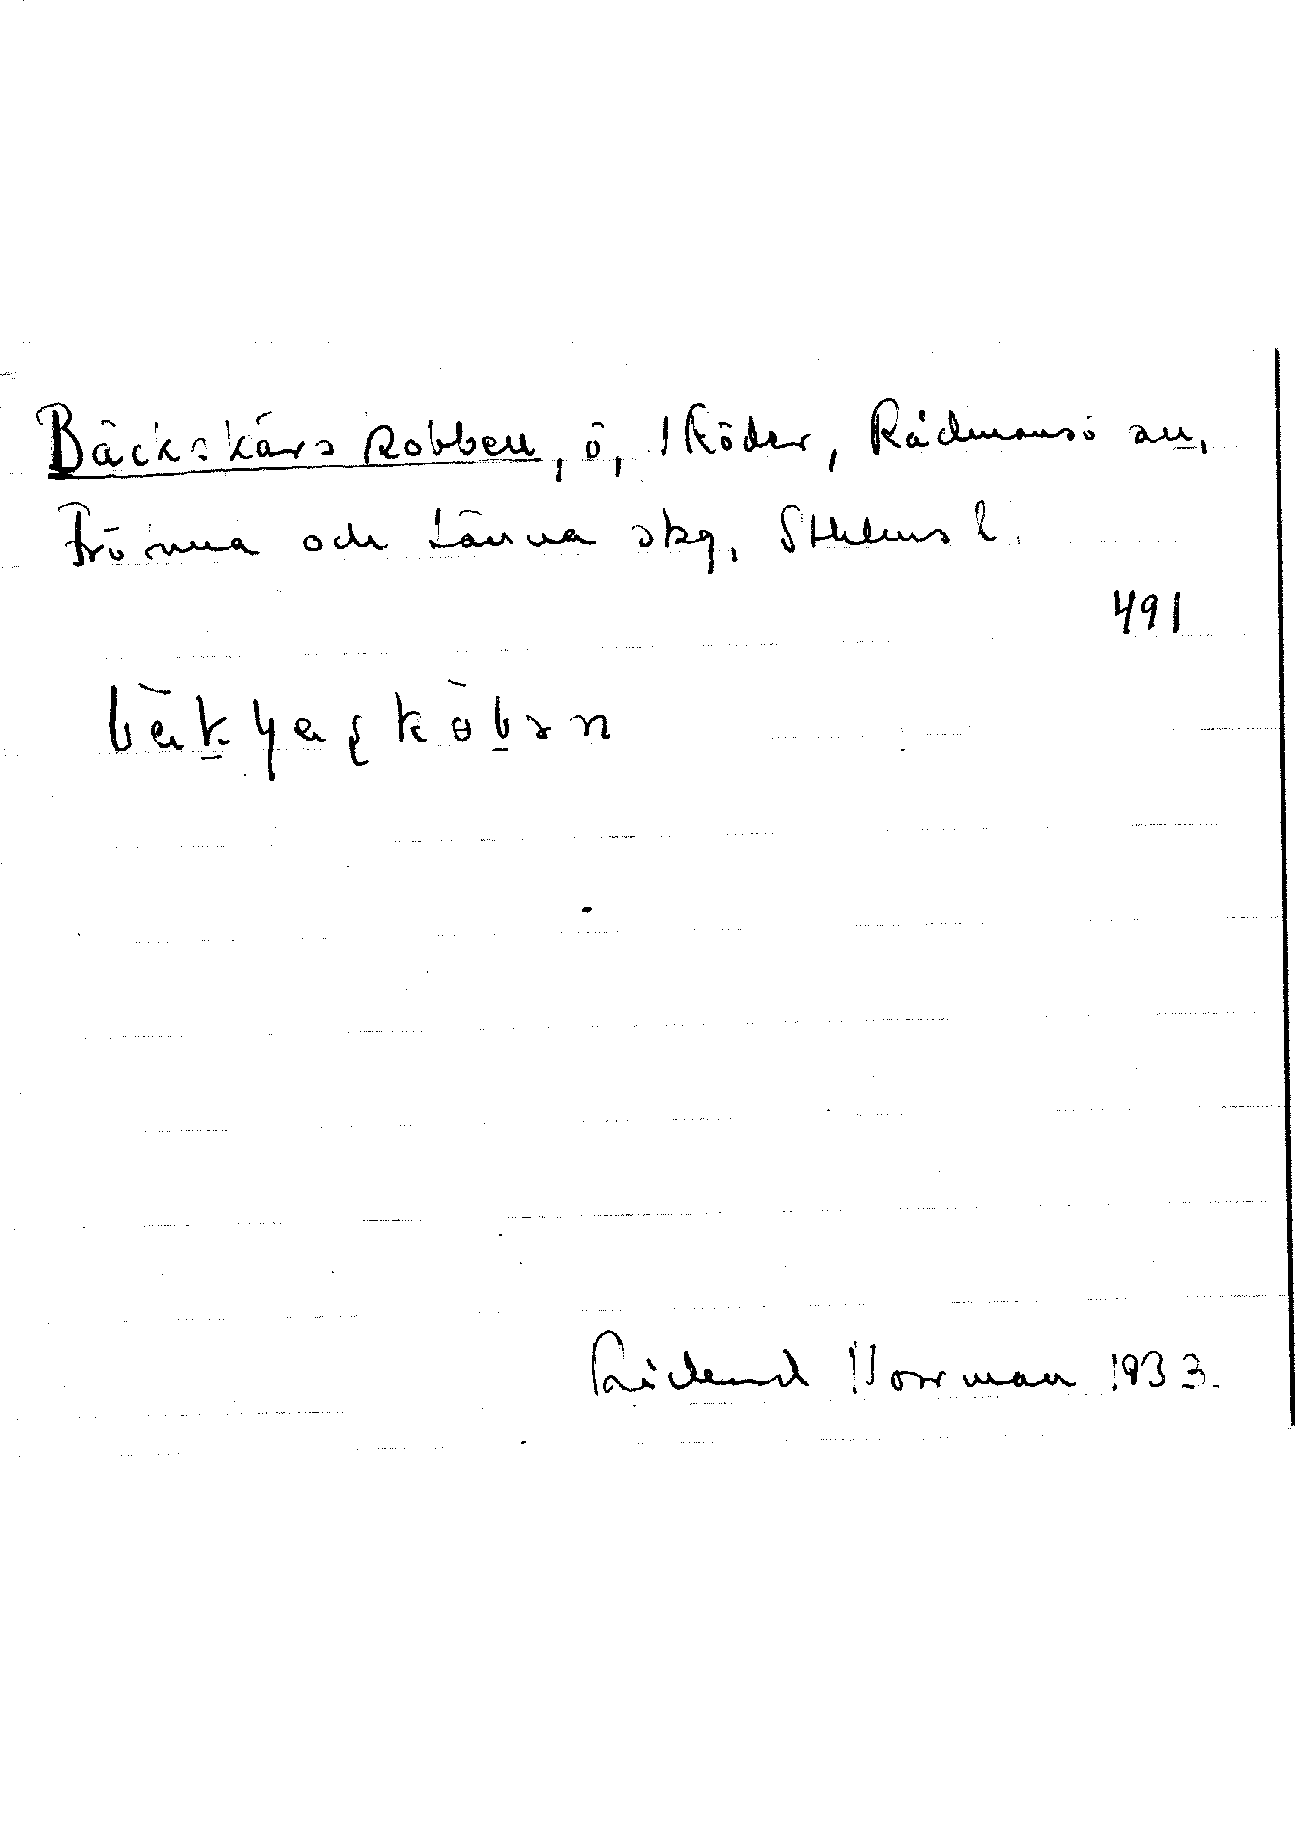 Bäckskärs kobben, ö, Sköder, Rådmansö sn,
Frö och Länna skg, Sthlms l.
491
Rickard Norrman 1933.